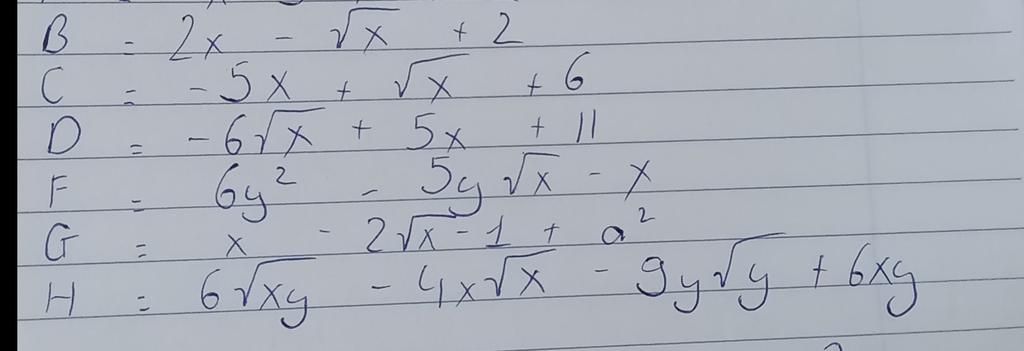 B = 2x - √x + 2
C = -5x + √x + 6
D = -6√x + 5x + 11
F = 6y² - 5y√x - x
G = x - 2√x-1 + a²
H = 6√xy - 4x√x - 9y√y + 6xy